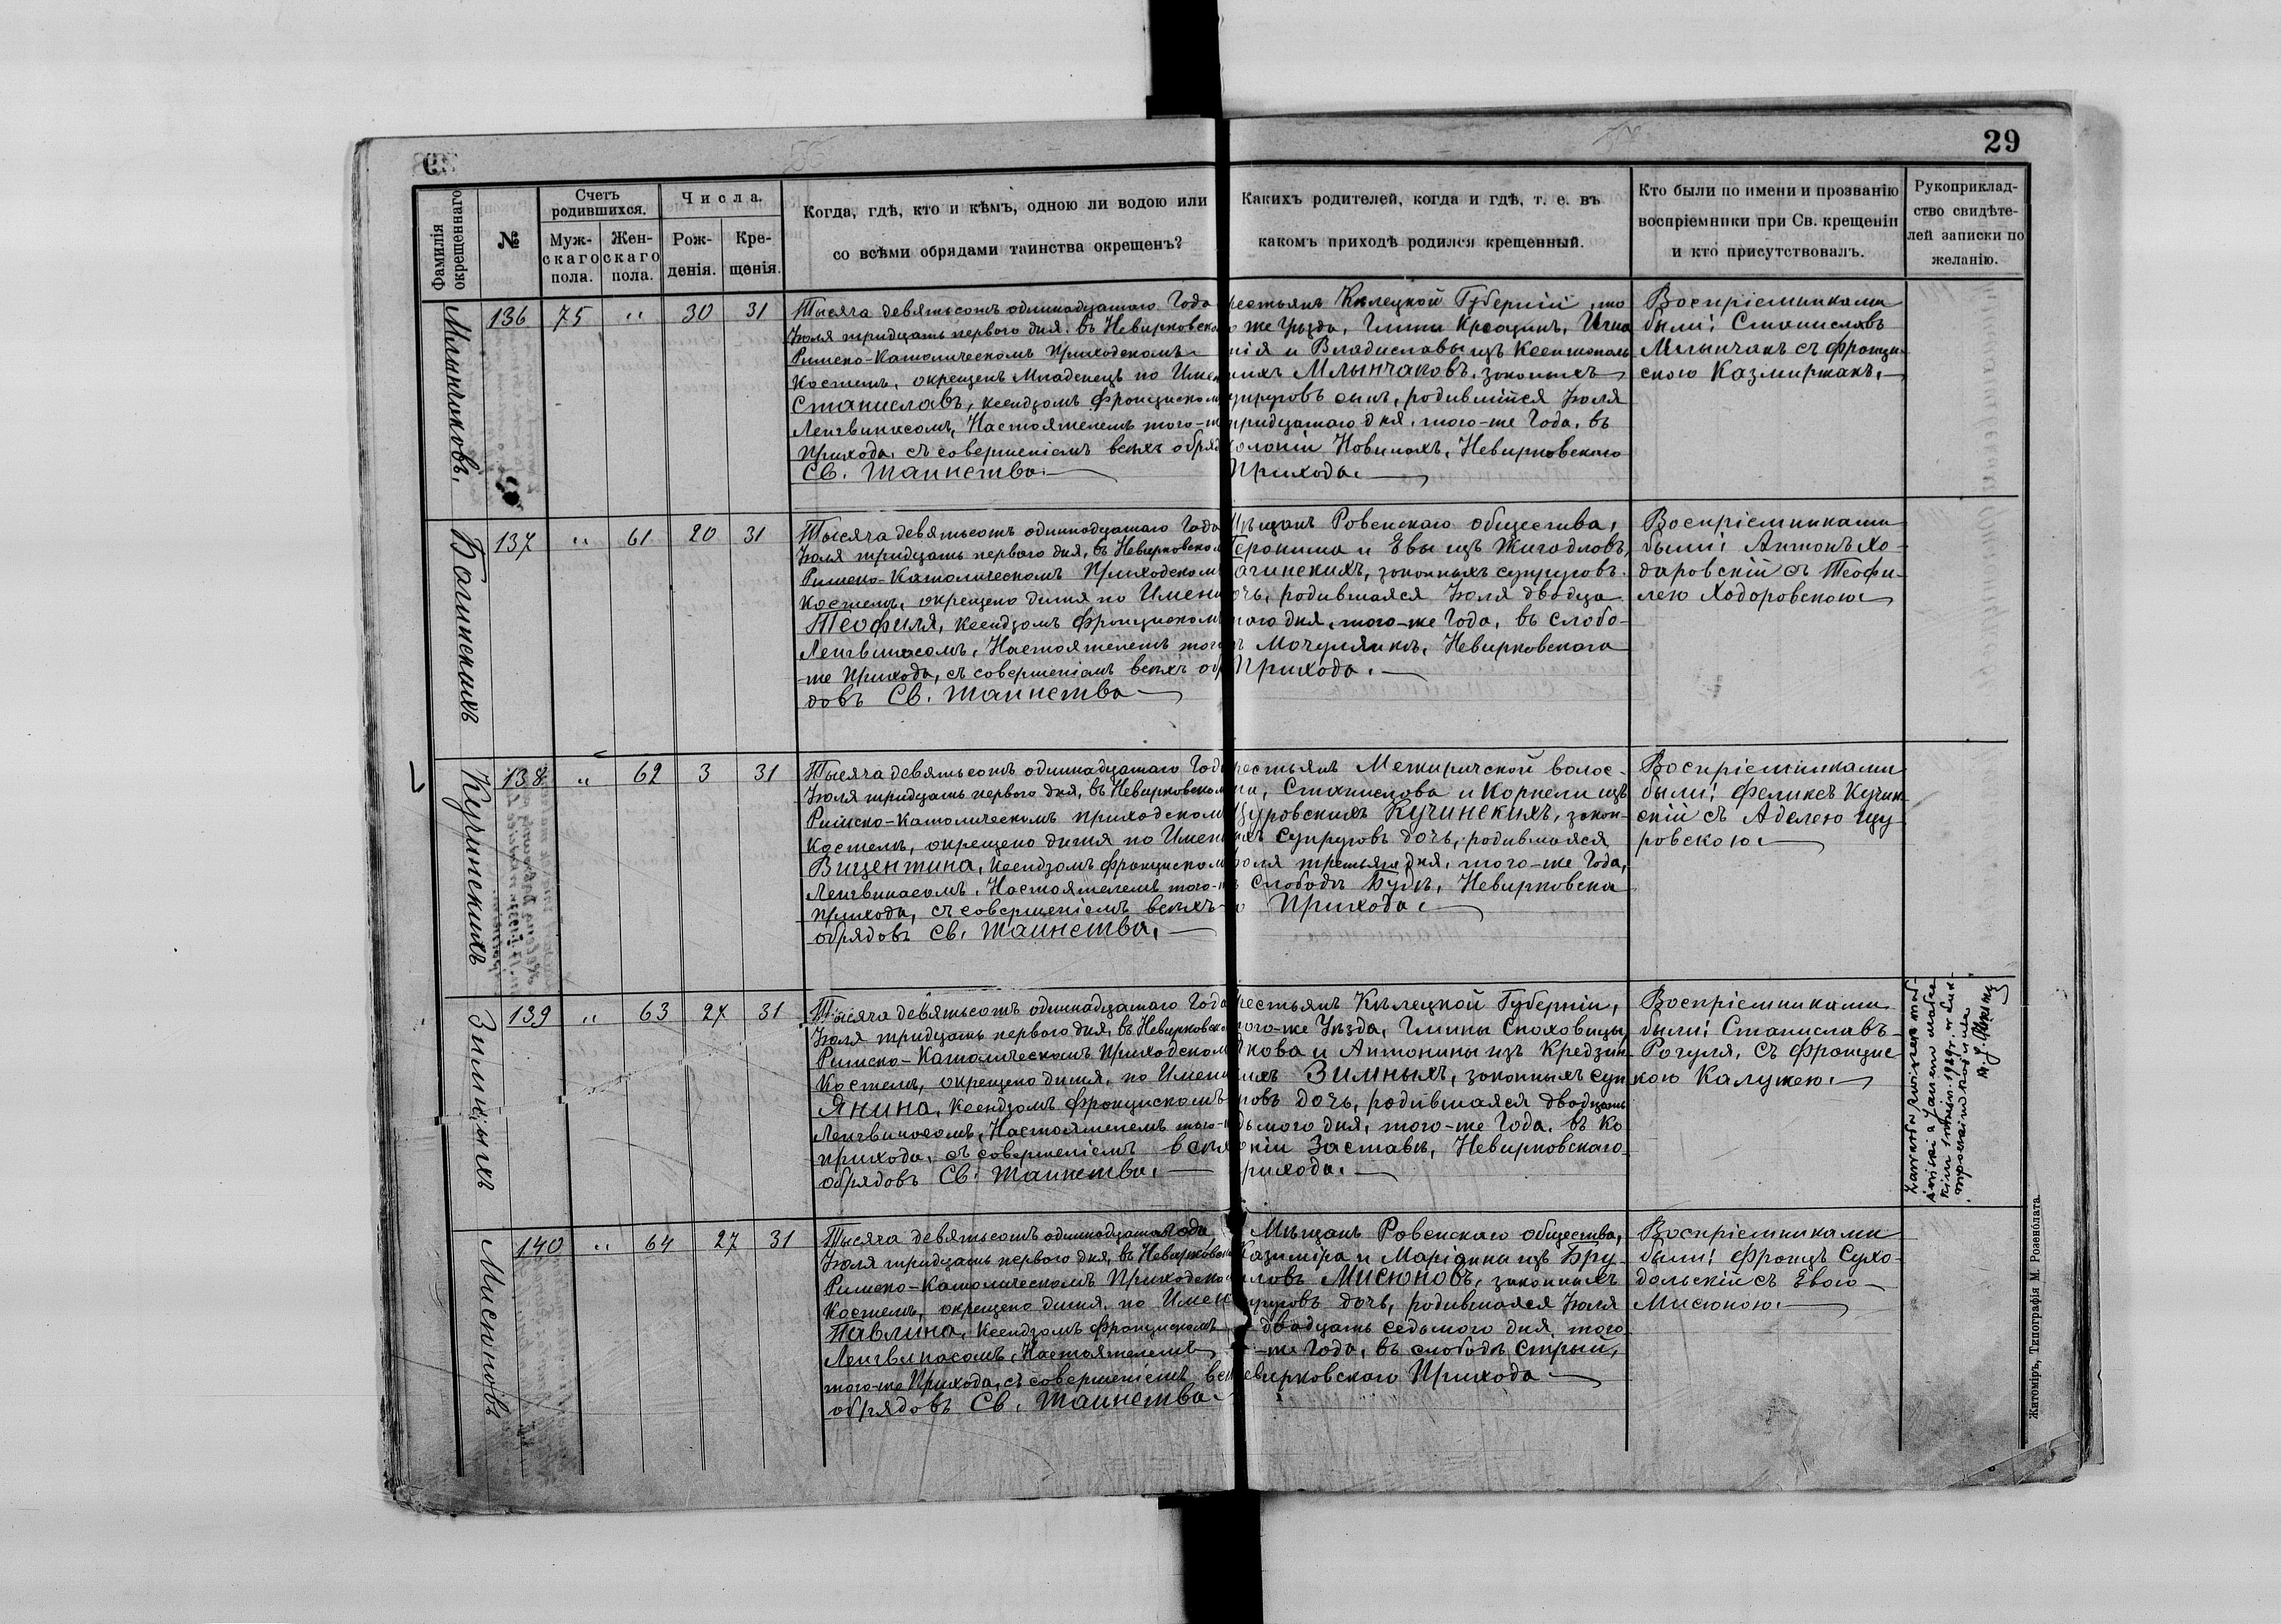 29
Фамилія окрещеннаго
№
Счетъ родившихся.
Мужскаго пола.
Женскаго пола.
Числа.
Рожденія.
Крещенія.
Когда, гдѣ, кто и кѣмъ, одною ли водою или
со всѣми обрядами таинства окрещенъ?
Какихъ родителей, когда и гдѣ, т. е. въ
какомъ приходѣ родился крещенный.
Кто были по имени и прозванію
воспріемники при Св. крещеніи
и кто присутствовалъ.
Рукоприклад-
ство свидѣте-
лей записки по
желанію.
Млынчаковъ.
136 75 " 30 31
Тысяча девятьсотъ одиннадцатаго Года
Іюля тридцать первого дня, въ Невирковско
Римско-Католическомъ Приходскомъ
Костелѣ, окрещенъ Младенецъ по Имен
Станиславъ, ксендзомъ Францискомъ
Ленгвинасомъ, Настоятелемъ того-
Прихода, съ совершеніемъ всѣхъ обряд
Св. Таинства.
рестьянъ Кѣлецкой Губерніи, то
же Уѣзда, Гмины Игна
тія и Владиславы изъ
Млынчаковъ, законныхъ
супруговъ сынъ, родившійся Іюля
тридцатаго дня, того-же Года, въ
колоніи Новинахъ, Невирковского
Прихода.
Воспріемниками
были: Станиславъ
Млынчакъ съ Францис-
скою Казмиржакъ.
Багинскихъ
137 " 61 20 31
Тысяча девятьсотъ одиннадцатаго Года
Іюля тридцать первого дня, въ Невирковско
Римско-Католическомъ Приходскомъ
Костелѣ, окрещено дитя по Имени
Теофиля, ксендзомъ Францискомъ
Ленгвинасомъ, Настоятелемъ того
-же Прихода, съ совершеніемъ всѣхъ об
довъ Св. Таинства
ѣщанъ Ровенскаго общества,
Геронима и Евы изъ Жигадловъ,
агинскихъ, законныхъ супруговъ
очь, родившаяся Іюля двадца
таго дня, того-же Года, въ слобо-
Мочулянкѣ, Невирковского
Прихода.
Воспріемниками
были: Антонъ Хо-
даровскій съ Теофи-
лею Ходоровскою.
Кучинскихъ
138 " 62 3 31
Тысяча девятьсотъ одиннадцатаго Года
Іюля тридцать первого дня, въ Невирковском
Римско-Католическомъ приходском
Костелѣ, окрещено дитя по Имени
Вицентина, ксендзомъ Францискомъ
Ленгвинасомъ, Настоятелемъ того-
прихода, съ совершеніемъ всѣхъ-
обрядовъ Св. Таинства.
рестьянъ Межиричской волос-
ти, Станислава и Корнели изъ
Щуровскихъ Кучинскихъ, закон-
ныхъ супруговъ дочь, родившаяся
Іюля третьяго дня, того-же Года,
слободѣ Будѣ, Невирковска
го Прихода.
Воспріемниками
были: Феликсъ Кучин-
скій съ Аделею Щу
ровскою.
Зимныхъ
139 " 63 27 31
Тысяча девятьсотъ одиннадцатаго Года
Іюля тридцать первого дня, въ Невирковско
Римско-Католическомъ Приходском
Костелѣ, окрещено дитя, по Имени
Янина, ксендзомъ Францискомъ-
Ленгвинасомъ, Настоятелемъ того-
прихода, съ совершеніемъ всѣх
обрядовъ Св. Таинства.
рестьянъ Кѣлецкой Губерніи,
того-же Уѣзда, Гмины
Якова и Антонины изъ
Зимныхъ, законныхъ суп
ровъ дочь, родившаяся двадцать
дьмого дня, того-же Года, въ Ко
оніи Заставѣ, Невирковскаго
рихода.
Воспріемниками
были: Станиславъ
Рогуля, съ Францис
кою Калужею.
Мисюновъ
140 " 64 27 31
Тысяча девятьсотъ одиннадцатаго Года
Іюля тридцать первого дня, въ Невирковско
Римско-Католическомъ Приходско
Костелѣ, окрещено дитя, по Имен
Павлина, ксендзомъ Францискомъ
Ленгвинасомъ, Настоятелемъ
того-же Прихода, съ совершеніемъ всѣ
обрядовъ Св. Таинства.
Мѣщанъ Ровенскаго общества,
Казимира и Маріянны изъ Бру-
Мисюновъ, законныхъ
супруговъ дочь, родившаяся Іюля
двадцать седьмого дня, того
-же Года, въ слободѣ Стрый,
евирковскаго Прихода
Воспріемниками
были: Францъ Сухо-
дольскій съ Евою
Мисюною.
Житоміръ, Типографія М. Розенблата.